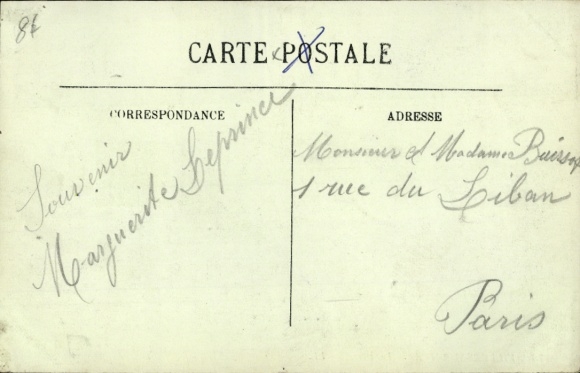 8f
CARTE POSTALE
CORRESPONDANCE
Souvenir
Marguerite Leprince
ADRESSE
Monsieur & Madame
1 rue du Liban
Paris